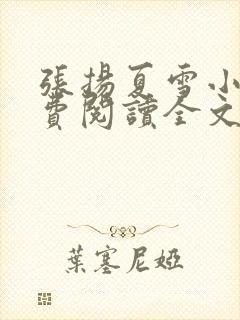 張揚夏雪小
費閱讀全文
葉塞尼婭